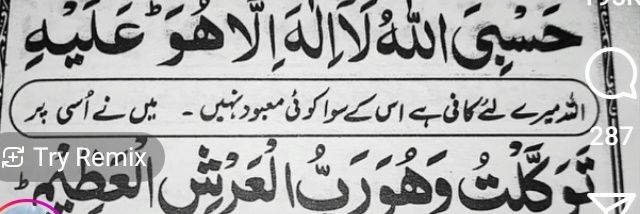 حَسْبِيَ اللّٰهُ لَاۤ اِلٰهَ اِلَّا هُوَ ؕ عَلَيْهِ
اللہ میرے لئے کافی ہے اس کے سوا کوئی معبود نہیں ۔ میں نے اُسی پر
287
Try Remix
تَوَكَّلْتُ وَهُوَ رَبُّ الْعَرْشِ الْعَظِيْمِ ؕ